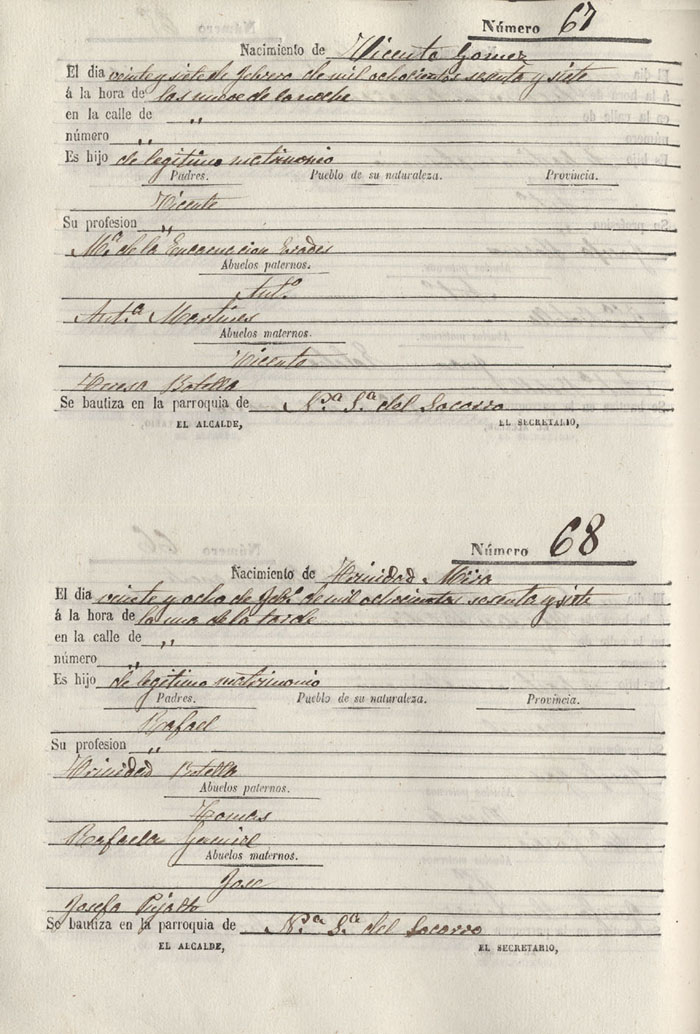 Número 67
Nacimiento de Vicente Gomez
El dia veinte y siete de febrero de mil ochocientos sesenta y siete
á la hora de las nueve de la noche
en la calle de "
número "
Es hijo de legitimo matrimonio
Padres. Pueblo de su naturaleza. Provincia.
Vicente
Su profesion "
Mª de la Encarnacion Prades
Abuelos paternos.
Antº
Antª Martines
Abuelos maternos.
Vicente
Teresa Botella
Se bautiza en la parroquia de Nª Sª del Socorro
EL ALCALDE, EL SECRETARIO,
Número 68
Nacimiento de Trinidad Mira
El dia veinte y ocho de Febº de mil ochocientos sesenta y siete
á la hora de la una de la tarde
en la calle de "
número "
Es hijo de legitimo matrimonio
Padres. Pueblo de su naturaleza. Provincia.
Rafael
Su profesion "
Trinidad Botella
Abuelos paternos.
Tomas
Rafaela
Abuelos maternos.
Jose
Josefa
Se bautiza en la parroquia de Nª Sª del Socorro
EL ALCALDE, EL SECRETARIO,